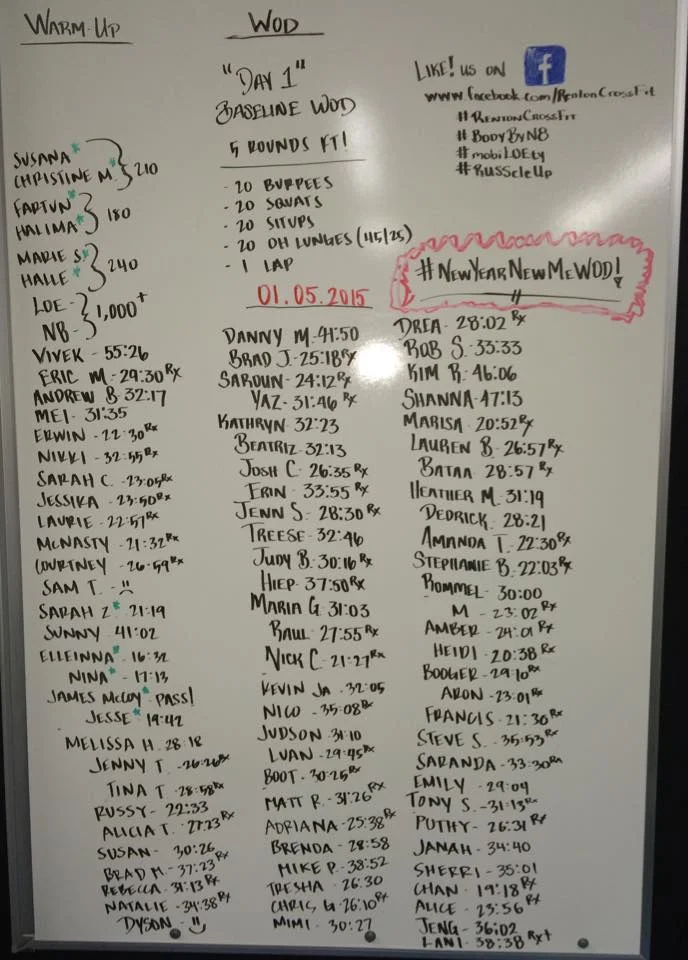 WARM-UP
SUSANA*
CHRISTINE M.* } 210
FARTUN*
HALIMA* } 180
MARIE S*
HALLE* } 240
LOE-
NB- } 1,000+
VIVEK - 55:26
ERIC M - 29:30 Rx
ANDREW B 32:17
MEI - 31:35
ERWIN - 22:30 Rx
NIKKI - 32:55 Rx
SARAH C. - 23:05 Rx
JESSIKA - 23:50 Rx
LAURIE - 22:57 Rx
MCNASTY - 21:32 Rx
COURTNEY - 26:59 Rx
SAM T. -
SARAH Z* 21:19
SUNNY 41:02
ELLEINNA* - 16:32
NINA* - 17:13
JAMES MCCOY* - PASS!
JESSE* 19:42
MELISSA H. 28:18
JENNY T. - 26:26 Rx
TINA T - 28:58 Rx
RUSSY - 22:33
ALICIA T. - 27:23 Rx
SUSAN - 30:26
BRAD M - 37:23 Rx
REBECCA - 31:13 Rx
NATALIE - 34:38 Rx
DYSON -
WOD
"DAY 1"
BASELINE WOD
5 ROUNDS FT!
- 20 BURPEES
- 20 SQUATS
- 20 SITUPS
- 20 OH LUNGES (45/25)
- 1 LAP
01.05.2015
DANNY M - 41:50
BRAD J. - 25:18 Rx
SAROUN - 24:12 Rx
YAZ - 31:46 Rx
KATHRYN 32:23
BEATRIZ 32:13
JOSH C. 26:35 Rx
ERIN - 33:55 Rx
JENN S. - 28:30 Rx
TREESE - 32:46
JUDY B - 30:16 Rx
HIEP - 37:50 Rx
MARIA G 31:03
RAUL - 27:55 Rx
NICK C. - 21:27 Rx
KEVIN JA - 32:05
NICO - 35:08 Rx
JUDSON 31:10
LUAN - 29:45 Rx
BOOT - 30:25 Rx
MATT R. - 31:26 Rx
ADRIANA - 25:38 Rx
BRENDA - 28:58
MIKE P. - 38:52
TRESHA - 26:30
CHRIS G - 26:10 Rx
MIMI - 30:27
LIKE! US ON f
www.facebook.com/RentonCrossFit
#RENTONCROSSFIT
#BODYBYNB
#mobiLOEty
#RUSScleUp
#NEWYEARNEWMEWOD!
DREA - 28:02 Rx
ROB S. - 33:33
KIM R. - 46:06
SHANNA - 47:13
MARISA - 20:52 Rx
LAUREN B - 26:57 Rx
BATAA - 28:57 Rx
HEATHER M. 31:19
DEDRICK - 28:21
AMANDA T. 22:30 Rx
STEPHANIE B. 22:03 Rx
ROMMEL - 30:00
M - 23:02 Rx
AMBER - 24:01 Rx
HEIDI - 20:38 Rx
BOOGER - 29:10 Rx
ARON - 23:01 Rx
FRANCIS - 21:30 Rx
STEVE S. - 35:53 Rx
SARANDA - 33:30 Rx
EMILY - 29:09
TONY S. - 31:13 Rx
PUTHY - 26:31 Rx
JANAH - 34:40
SHERRI - 35:01
CHAN - 19:18 Rx
ALICE - 23:56 Rx
JENG - 36:02
LANI - 38:38 Rx+